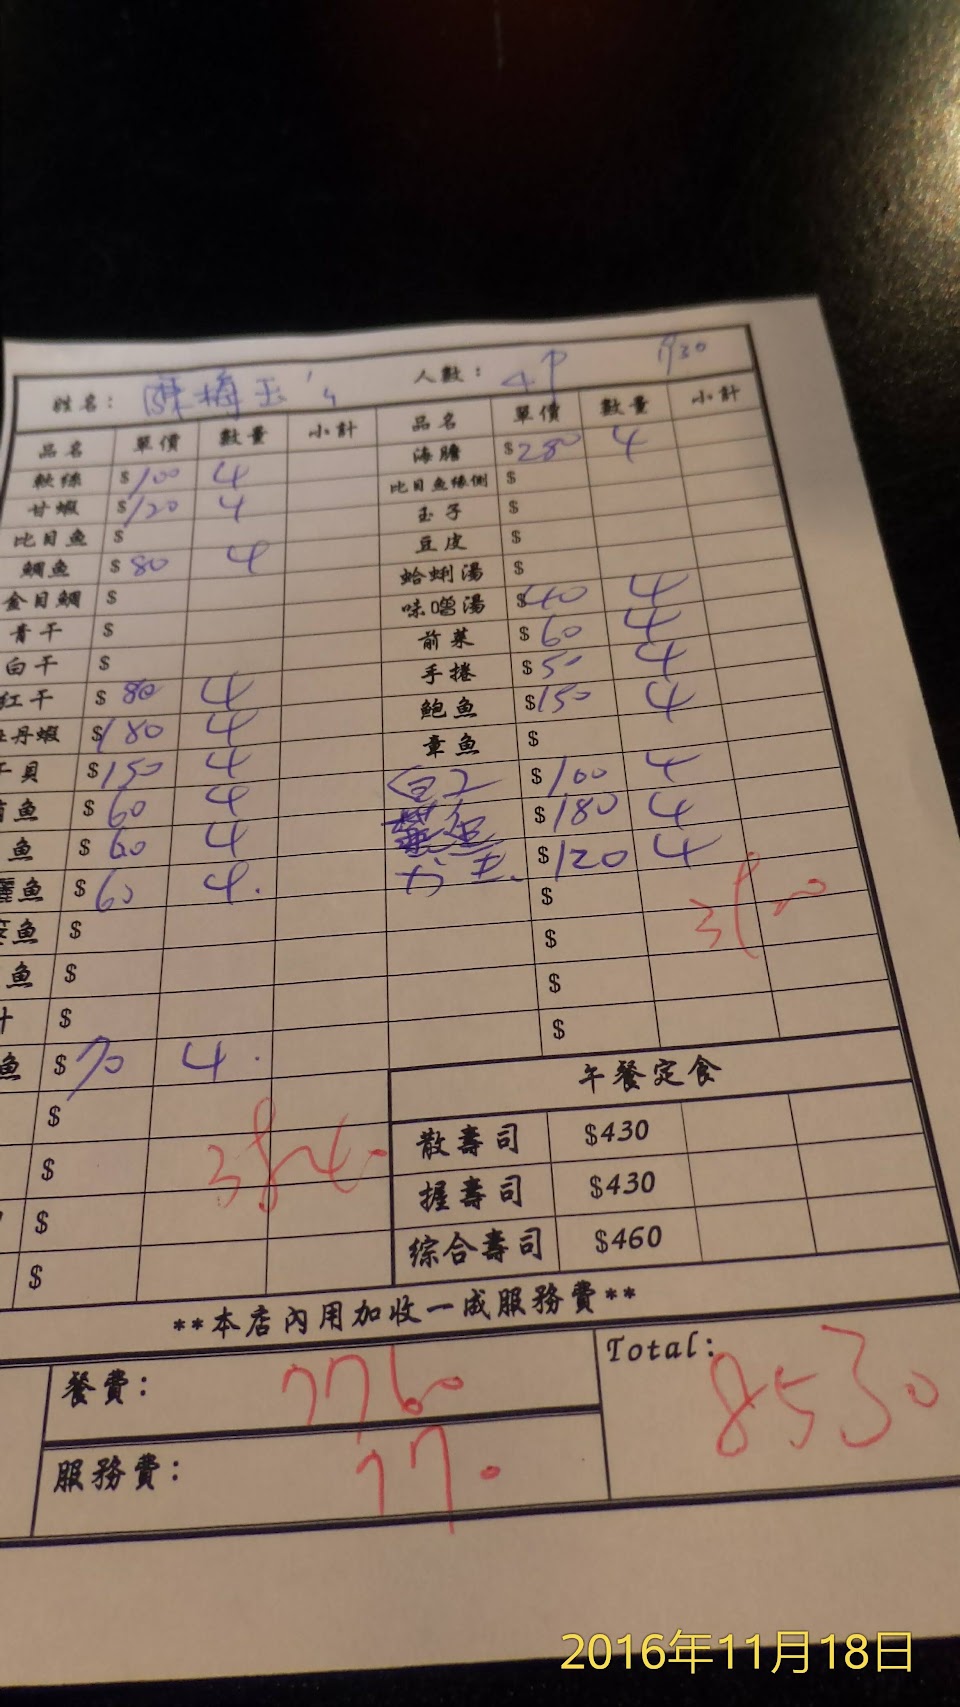 姓名: 陳梅玉's 人數: 4P 1930
品名 單價 數量 小計 品名 單價 數量 小計
軟絲 $100 4 海膽 $280 4
甘蝦 $120 4 比目魚緣側 $
比目魚 $ 玉子 $
鯛魚 $80 4 豆皮 $
金目鯛 $ 蛤蜊湯 $
青干 $ 味噌湯 $40 4
白干 $ 前菜 $60 4
紅干 $80 4 手捲 $50 4
牡丹蝦 $180 4 鮑魚 $150 4
干貝 $150 4 章魚 $
魚 $60 4 白子 $100 4
魚 $60 4 $180 4
魚 $60 4. $120 4
魚 $ $
魚 $ $
$ $
魚 $70 4. $
$ 午餐定食
$ 3840 散壽司 $430
$ 握壽司 $430
$ 綜合壽司 $460
**本店內用加收一成服務費**
餐費: 7760 Total: 8530
服務費: 770
2016年11月18日